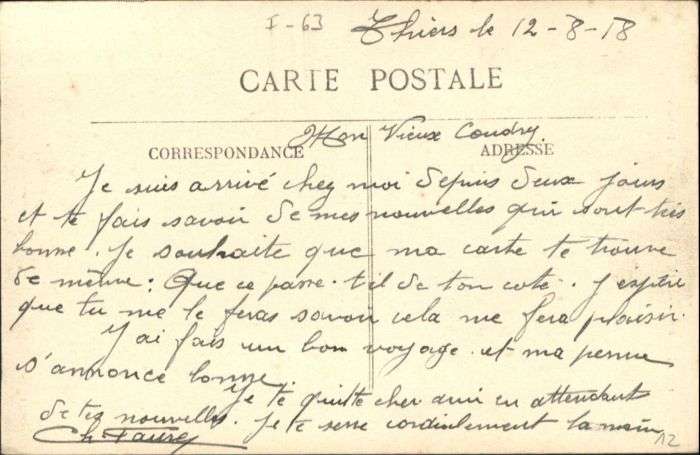 I-63
Thiers le 12-8-18
CARTE POSTALE
Mon Vieux Coudry
CORRESPONDANCE
ADRESSE
Je suis arrivé chez moi depuis deux jours
et te fais savoir de mes nouvelles qui sont très
bonne. Je souhaite que ma carte te trouve
de même. Que ce passe-t'il de ton coté. J'espère
que tu me le feras savoir cela me fera plaisir.
J'ai fais un bon voyage et ma perme
s'annonce bonne.
Je te quitte cher ami en attendant
de tes nouvelles. Je te serre cordialement la main
Ch. Faure
12